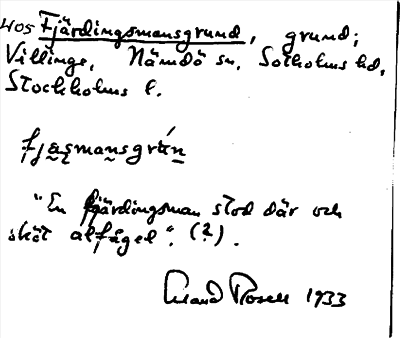 405 Fjärdingsmansgrund, grund;
Villinge, Nämdö sn, Sotholms hd,
Stockholms l.
fjäsmansgrún
"En fjärdingsman stod där och
sköt alfågel". (?).
1933